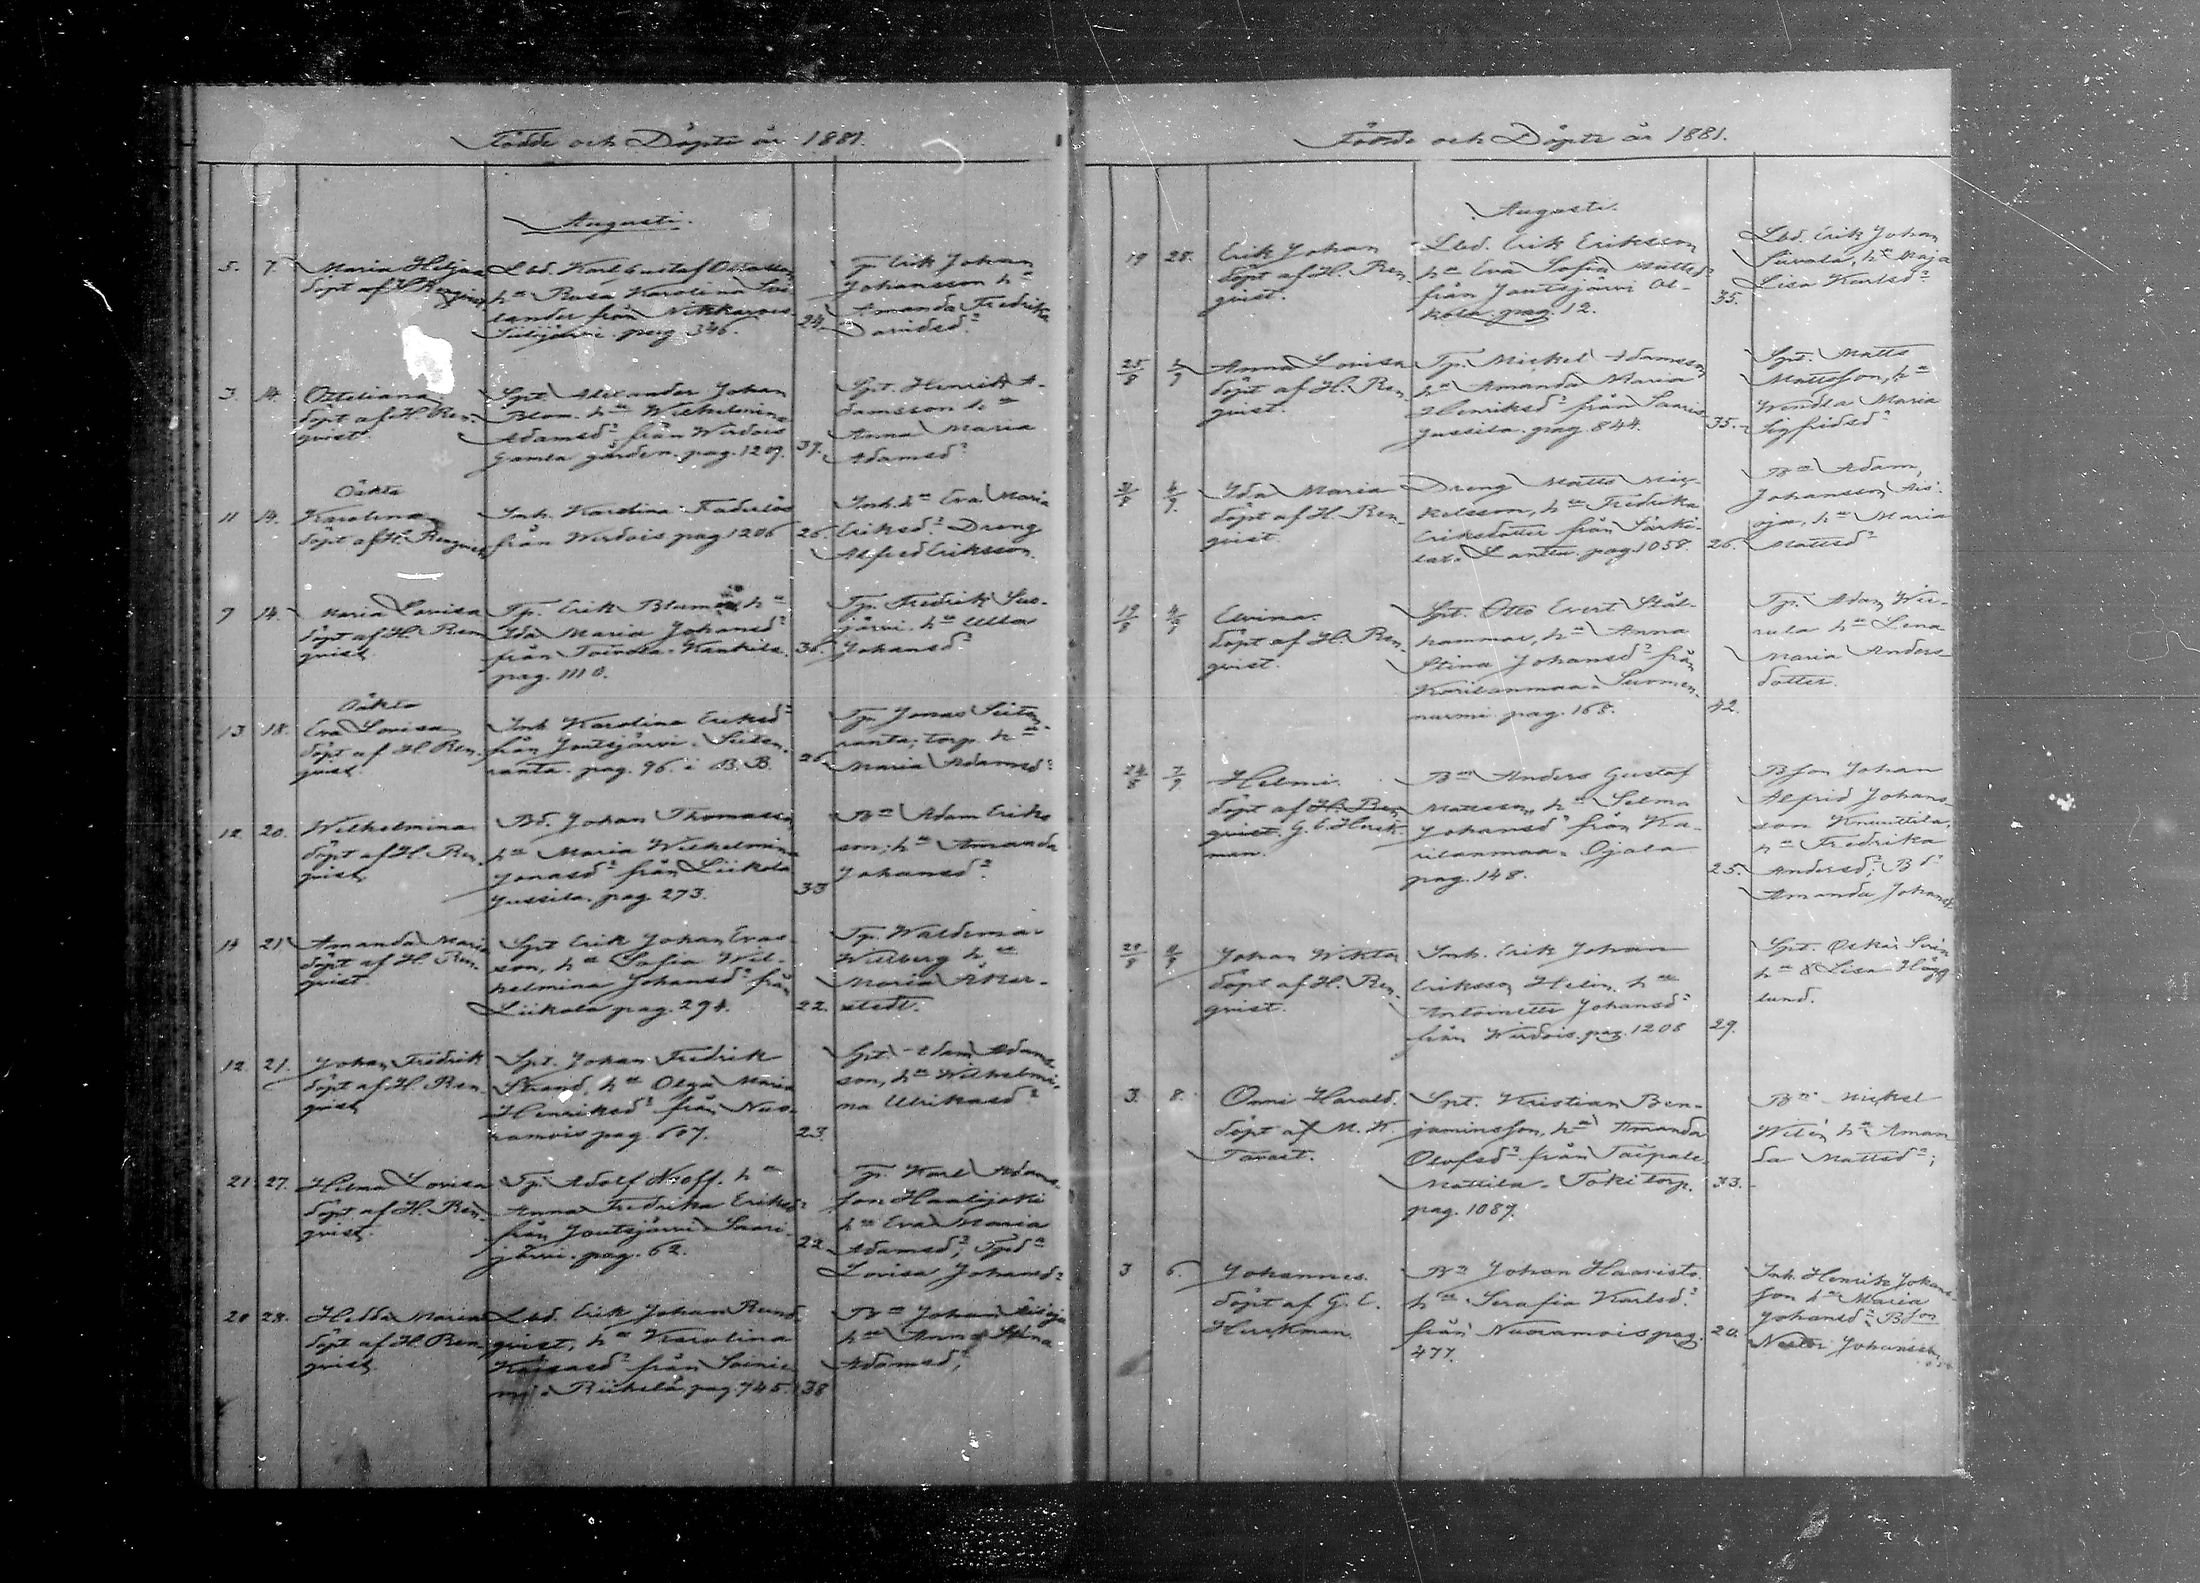 Födde och Döpte år 1881.
Augusti.
5. 7. Maria Hilja
döpt af H. Renqvist
Lbd. Karl Gustaf
hu Rosa Karolina
lander från
pag. 346.
24.
Tp. Erik Johan
Johansson hu
Amanda Fredrika
Davidsdr
3. 14. Ottiliana
döpt af H. Ren-
qvist.
Spt. Alexander Johan
Blom. hu Wilhelmina
Adamsdr från Wirdois
Gamla gården. pag. 1209.
39.
Spt. Henrik A-
damsson hu
Anna Maria
Adamsdr
11 14. Oäkta
Karolina
döpt af H. Renqvist
Inh. Karolina
från Wirdois pag 1206
26.
Inh. hu Eva Maria
Eriksdr. Dreng
Alfred Eriksson.
7 14. Maria Lovisa
döpt af H. Ren
qvist
Tp. Erik hu
Ida Maria Johansdr
från Toivola. Kankila.
pag. 1110.
36.
Tp. Fredrik
järvi. hu Ulla
Johansdr
13. 18. Oäkta
Eva Lovisa
döpt af H. Ren-
qvist.
Inh Karolina Eriksdr
från Joutsjärvi.
ranta. pag. 96. i B. B.
26
Tp. Jonas
ranta; torp. hu
Maria Adamsdr
12. 20. Wilhelmina
döpt af H. Ren-
qvist
Bd. Johan Thomasson
hu Maria Wilhelmina
Jonasdr från Liikola
Jussila. pag 273.
33
Bn Adam Eriks
son; hu Amanda
Johansdr
14 21. Amanda Maria
döpt af H. Ren-
qvist.
Spt Erik Johan
son, hu Sofia Wil-
helmina Johansdr från
Liikola pag. 294.
22.
Tp. Waldemar
Willberg hu
Maria Åker-
stedt.
12. 21. Johan Fredrik
döpt af H. Ren
qvist
Spt. Johan Fredrik
Strand, hu Olga Maria
Henriksdr från Nuo-
ramois pag. 607.
23.
Spt. Adam Adams
son, hu Wilhelmi-
na Ulrikasdr
21. 27. Hilma Lovisa
döpt af H. Ren-
qvist.
Tp. Adolf Noff. hu
Anna Fredrika Eriksdr
från Joutsjärvi Saari-
järvi. pag. 62.
22.
Tp. Karl Adams
son Haalijoki
hu Eva Maria
Adamsdr;
Lovisa Johansdr
20 28. Hedda Maria
döpt af H. Ren
qvist
Lbd. Erik Johan Rund
qvist, hu Karolina
från Soinie
mi. pag. 745.
38
Bn Johan
hu Anna Stina
Adamsdr;
Födde och Döpte år 1881.
Augusti.
19 28. Erik Johan
döpt af H. Ren
qvist.
Lbd. Erik Eriksson
hu Eva Sofia Mattsdr
från Joutsjärvi Ol-
kola. pag. 12.
35.
Lbd. Erik Johan
hu Maja
Lisa Karlsdr
25/8 Anna Lovisa
döpt af H. Ren
qvist.
Tp. Mickel Adamsson
hu Amanda Maria
Henriksdr från Saaris
Jussila. pag. 844.
35.
Spt. Matts
Mattsson, hu
Wendla Maria
Sigfridsdr
4/9 Ida Maria
döpt af H. Ren-
qvist
Dreng Matts Mic-
kelsson, hu Fredrika
Eriksdotter från Särki-
laks Lantta. pag. 1058.
26.
Bn Adam
Johansson
oja, hu Maria
Mattsdr
19/8 4/9 Elvina.
döpt af H. Ren-
qvist.
Spt. Otto Evert Stål-
hammar, hu Anna
Stina Johansdr från
Karilanmaa. Suomen-
nurmi. pag. 168.
42.
Tp. Adam
rula hu Lena
Maria Anders
dotter.
24/8 7/9 Helmi.
döpt af H. Ren
qvist. G. E. Herck-
man.
Bn Anders Gustaf
Mattsson, hu Selma
Johansdr från Ka-
rilanmaa. Ojala
pag. 148.
25.
Bson Johan
Alfrid Johans-
son Knuuttila,
hu Fredrika
Andersdr; Bdr
Amanda Johansdr
Johan Wiktor
döpt af H. Ren-
qvist.
Inh. Erik Johan
Eriksson Helin, hu
Antoinette Johansdr
från Wirdois. pag. 1206
29.
Spt. Oskar
hu Lisa Hägg
lund.
3. 8. Onni Harald.
döpt af M. W.
Tavast.
Spt. Kristian Ben-
jaminsson, hu Amanda
Olofsdr från Taipale.
Mattila. Toki torp.
pag. 1087.
33.
Bn Mickel
Wilén hu Aman
da Mattsdr;
3 6. Johannes.
döpt af G. E.
Herckman.
Bn Johan Haavisto.
hu Serafia Karlsdr
från Nuoramois pag.
477.
20.
Inh. Henrik Johans
son hu Maria
Johansdr. Bson
Nestor Johansson